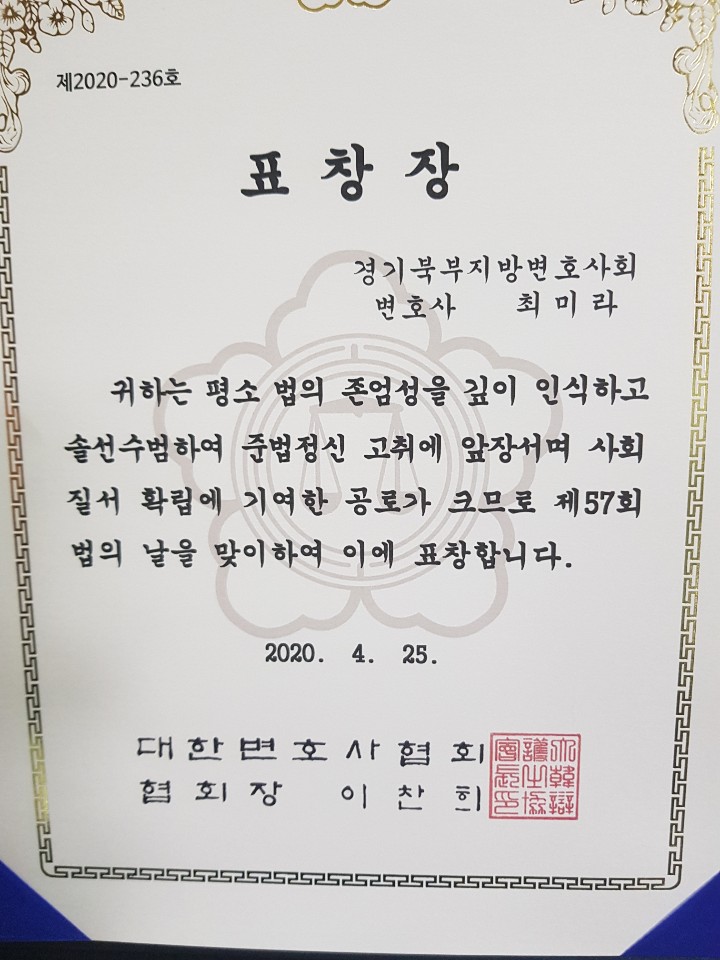 제2020-236호
표 창 장
경기북부지방변호사회
변호사 최미라
귀하는 평소 법의 존엄성을 깊이 인식하고
솔선수범하여 준법정신 고취에 앞장서며 사회
질서 확립에 기여한 공로가 크므로 제57회
법의 날을 맞이하여 이에 표창합니다.
2020. 4. 25.
대한변호사협회
협회장 이찬희